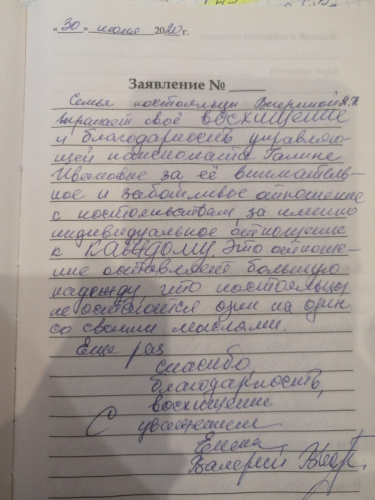 "30" июля 2020 г.
Заявление №
Семья постояльцы А.П.
выражает своё восхищение
и благодарность управляю-
щей пансионата Галине
Ивановне за её вниматель-
ное и заботливое отношение
к постояльцам за именно
индивидуальное отношение
к КАЖДОМУ. Это отноше-
ние оставляет большую
надежду что постояльцы
не остаются один на один
со своими мыслями.
Еще раз
спасибо,
благодарность,
восхищение
С уважением
Елена
Валерий